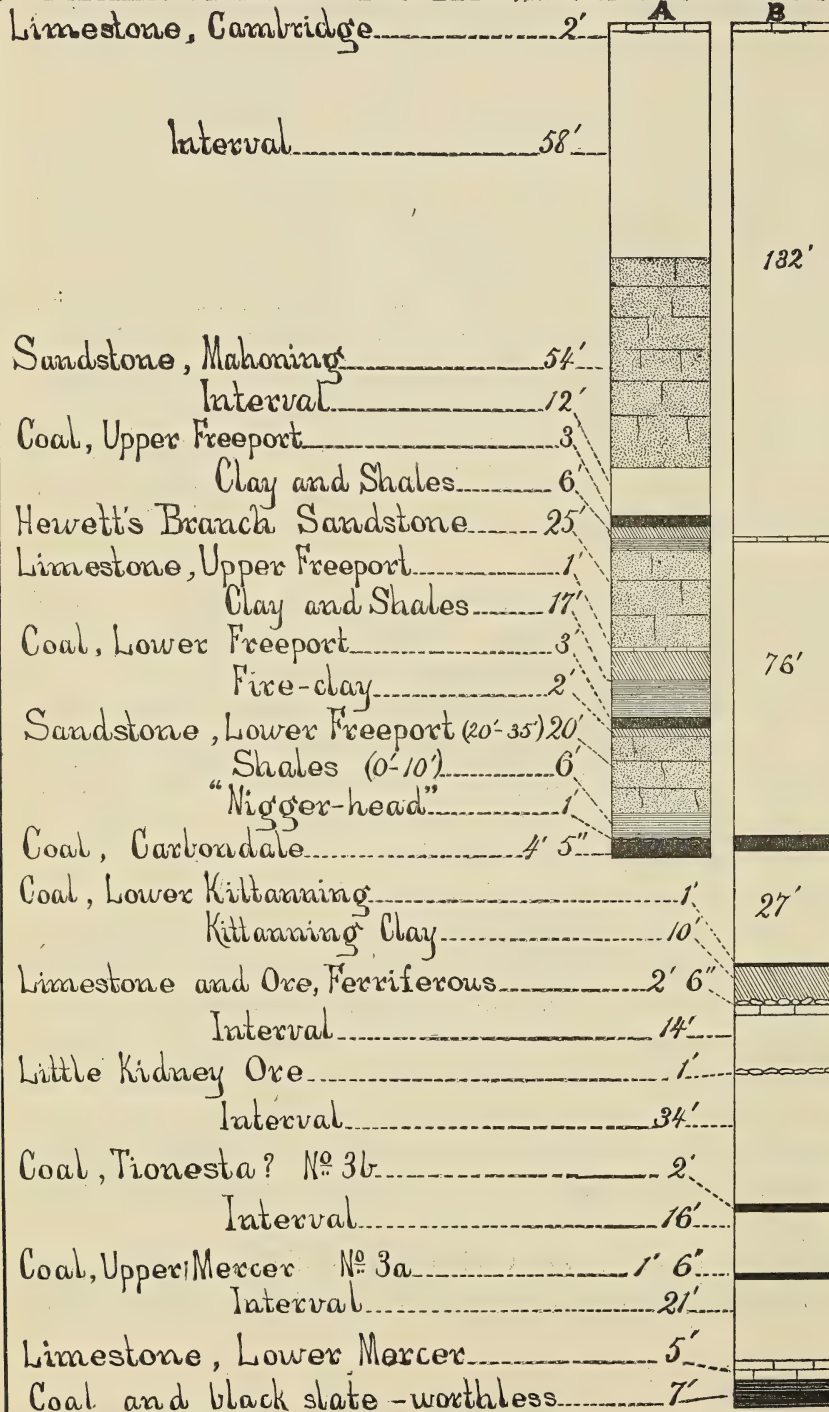 A B
Limestone, Cambridge 2'
Interval 58'
132'
Sandstone, Mahoning 54'
Interval 12'
Coal, Upper Freeport 3'
Clay and Shales 6'
Hewett's Branch Sandstone 25'
Limestone, Upper Freeport 1'
Clay and Shales 17'
Coal, Lower Freeport 3'
76'
Fire-clay 2'
Sandstone, Lower Freeport (20'-35') 20'
Shales (0'-10') 6'
"Nigger-head" 1'
Coal, Carbondale 4' 5"
Coal, Lower Kittanning 1'
27'
Kittanning Clay 10'
Limestone and Ore, Ferriferous 2' 6"
Interval 14'
Little Kidney Ore 1'
Interval 34'
Coal, Tionesta? Nº 3b 2'
Interval 16'
Coal, Upper Mercer Nº 3a 1' 6"
Interval 21'
Limestone, Lower Mercer 5'
Coal and black slate - worthless 7'